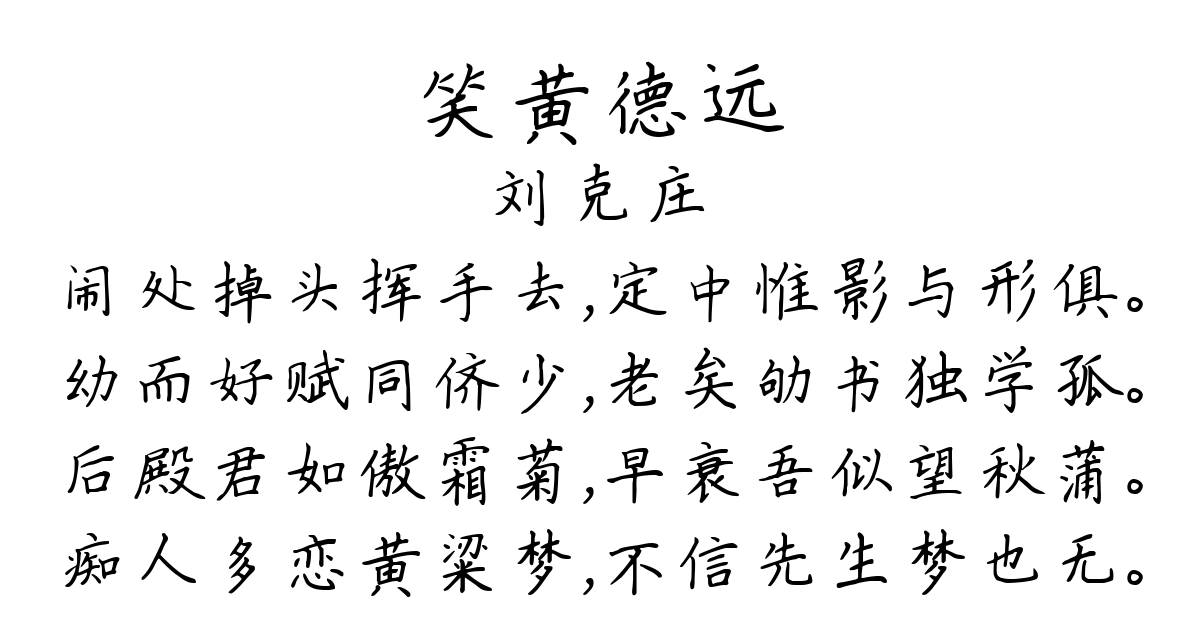 笑黄德远
刘克庄
闹处掉头挥手去,定中惟影与形俱。
幼而好赋同侪少,老矣劬书独学孤。
后殿君如傲霜菊,早衰吾似望秋蒲。
痴人多恋黄粱梦,不信先生梦也无。